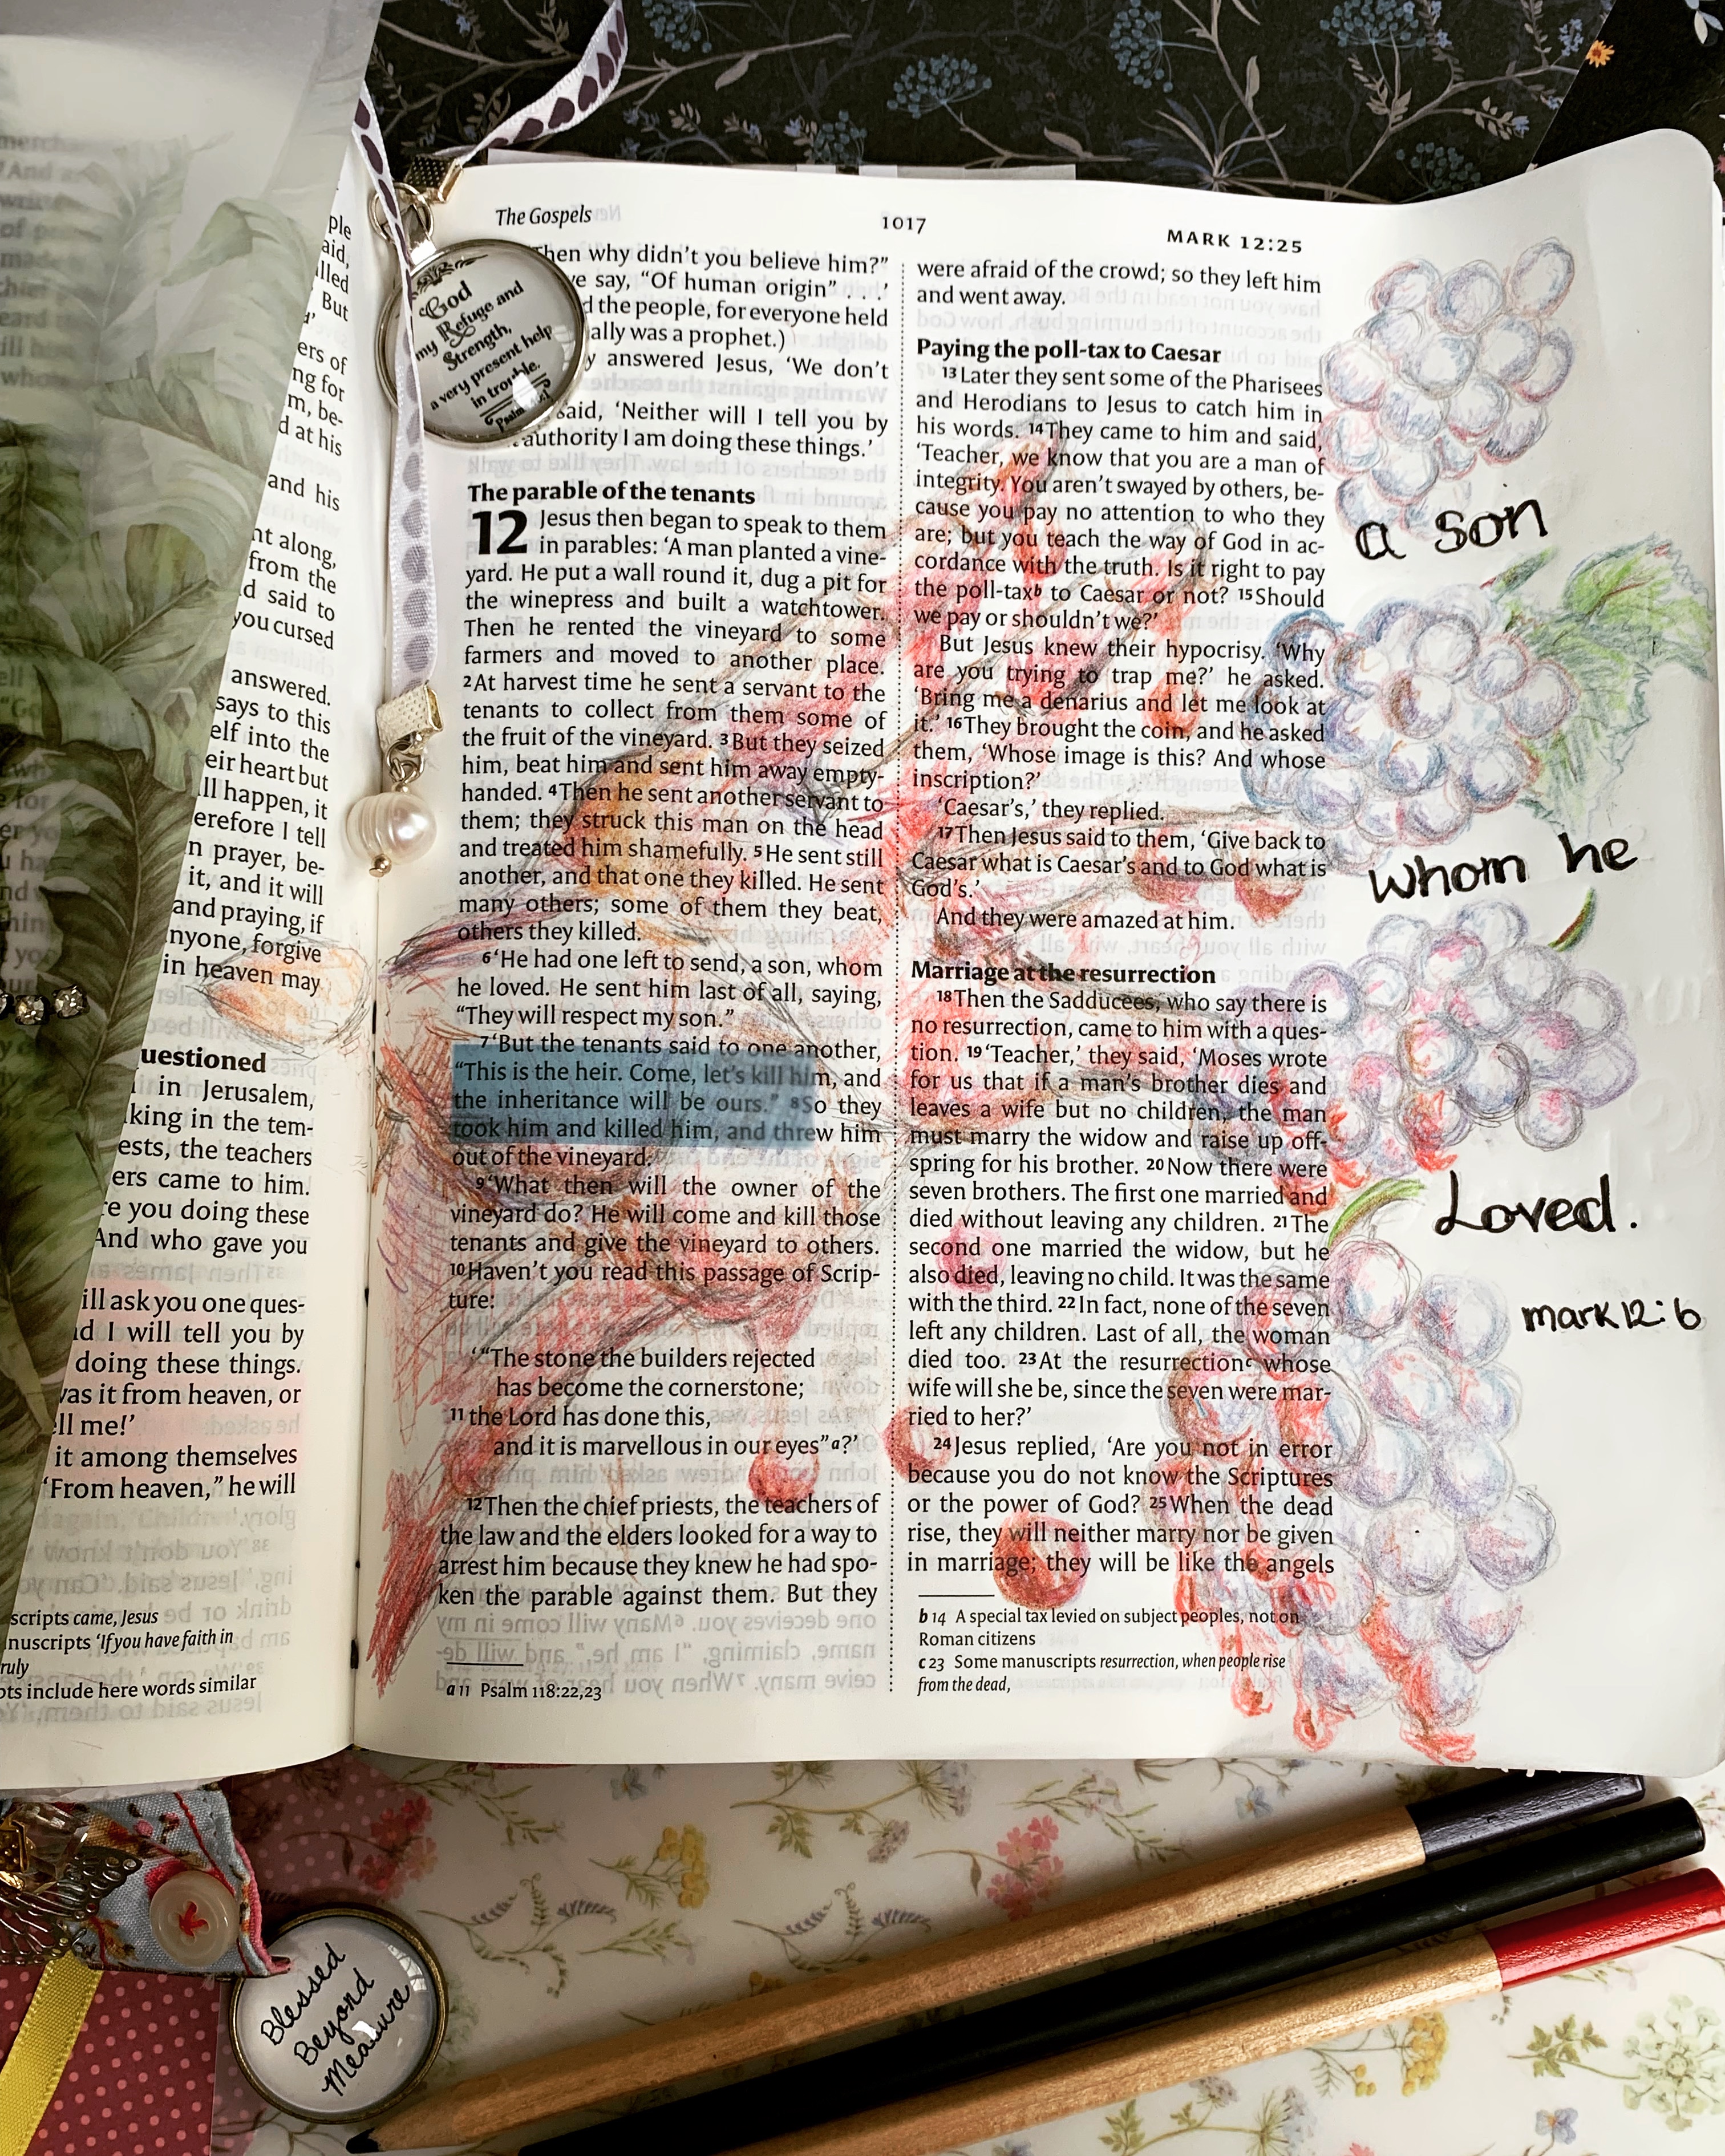 ple
aid,
lled
But
ers of
ng for
m, be-
d at his
and his
nt along,
from the
d said to
you cursed
answered.
says to this
elf into the
eir heart but
ll happen, it
erefore I tell
n prayer, be-
it, and it will
and praying, if
nyone, forgive
in heaven may
uestioned
in Jerusalem,
king in the tem-
ests, the teachers
ers came to him.
re you doing these
And who gave you
ill ask you one ques-
d I will tell you by
doing these things.
as it from heaven, or
ell me!’
it among themselves
‘From heaven,” he will
scripts came, Jesus
nuscripts ‘If you have faith in
ruly
ots include here words similar
The Gospels
1017
MARK 12:25
God
my Refuge and
Strength,
a very present help
in trouble.
Psalm
hen why didn’t you believe him?”
e say, “Of human origin” . . .’
d the people, for everyone held
ally was a prophet.)
y answered Jesus, ‘We don’t
said, ‘Neither will I tell you by
authority I am doing these things.’
The parable of the tenants
12 Jesus then began to speak to them
in parables: ‘A man planted a vine-
yard. He put a wall round it, dug a pit for
the winepress and built a watchtower.
Then he rented the vineyard to some
farmers and moved to another place.
2 At harvest time he sent a servant to the
tenants to collect from them some of
the fruit of the vineyard. 3 But they seized
him, beat him and sent him away empty-
handed. 4 Then he sent another servant to
them; they struck this man on the head
and treated him shamefully. 5 He sent still
another, and that one they killed. He sent
many others; some of them they beat,
others they killed.
6 ‘He had one left to send, a son, whom
he loved. He sent him last of all, saying,
“They will respect my son.”
7 ‘But the tenants said to one another,
“This is the heir. Come, let’s kill him, and
the inheritance will be ours.” 8 So they
took him and killed him, and threw him
out of the vineyard.
9 ‘What then will the owner of the
vineyard do? He will come and kill those
tenants and give the vineyard to others.
10 Haven’t you read this passage of Scrip-
ture:
‘“The stone the builders rejected
has become the cornerstone;
11 the Lord has done this,
and it is marvellous in our eyes”a?’
12 Then the chief priests, the teachers of
the law and the elders looked for a way to
arrest him because they knew he had spo-
ken the parable against them. But they
a 11 Psalm 118:22,23
were afraid of the crowd; so they left him
and went away.
Paying the poll-tax to Caesar
13 Later they sent some of the Pharisees
and Herodians to Jesus to catch him in
his words. 14 They came to him and said,
‘Teacher, we know that you are a man of
integrity. You aren’t swayed by others, be-
cause you pay no attention to who they
are; but you teach the way of God in ac-
cordance with the truth. Is it right to pay
the poll-taxb to Caesar or not? 15 Should
we pay or shouldn’t we?’
But Jesus knew their hypocrisy. ‘Why
are you trying to trap me?’ he asked.
‘Bring me a denarius and let me look at
it.’ 16 They brought the coin, and he asked
them, ‘Whose image is this? And whose
inscription?’
‘Caesar’s,’ they replied.
17 Then Jesus said to them, ‘Give back to
Caesar what is Caesar’s and to God what is
God’s.’
And they were amazed at him.
Marriage at the resurrection
18 Then the Sadducees, who say there is
no resurrection, came to him with a ques-
tion. 19 ‘Teacher,’ they said, ‘Moses wrote
for us that if a man’s brother dies and
leaves a wife but no children, the man
must marry the widow and raise up off-
spring for his brother. 20 Now there were
seven brothers. The first one married and
died without leaving any children. 21 The
second one married the widow, but he
also died, leaving no child. It was the same
with the third. 22 In fact, none of the seven
left any children. Last of all, the woman
died too. 23 At the resurrectionc whose
wife will she be, since the seven were mar-
ried to her?’
24 Jesus replied, ‘Are you not in error
because you do not know the Scriptures
or the power of God? 25 When the dead
rise, they will neither marry nor be given
in marriage; they will be like the angels
b 14 A special tax levied on subject peoples, not on
Roman citizens
c 23 Some manuscripts resurrection, when people rise
from the dead,
a son
whom he
Loved.
mark 12:6
Blessed
Beyond
Measure